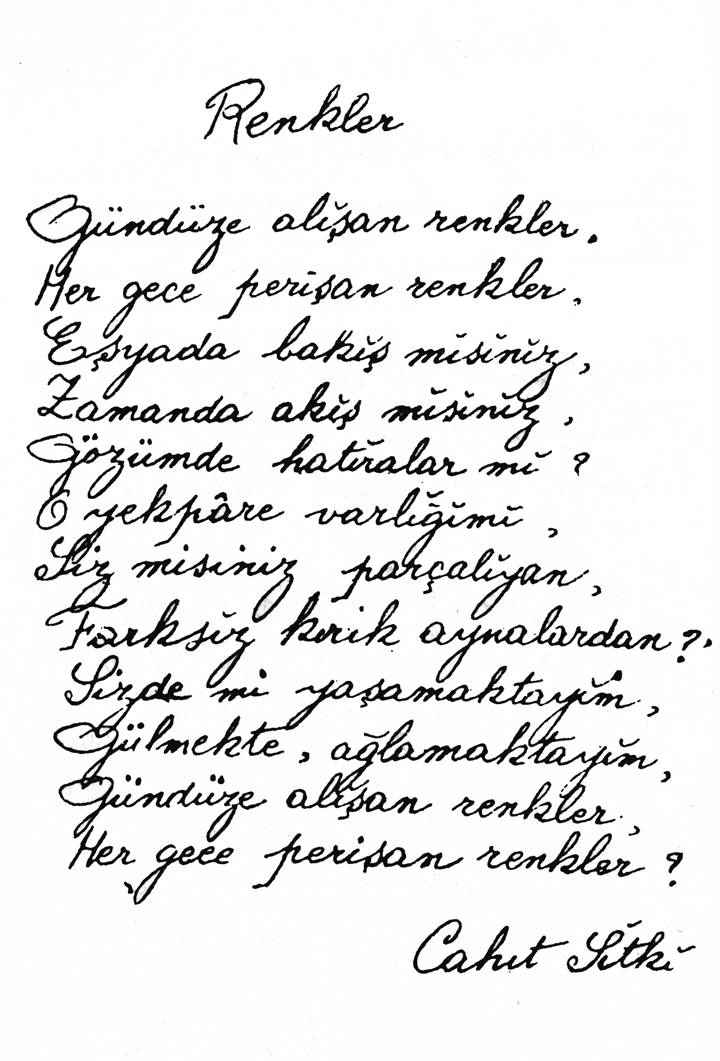 Renkler
Gündüze alışan renkler.
Her gece perişan renkler,
Eşyada bakış mısınız,
Zamanda akış mısınız,
Gözümde hatıralar mı ?
O yekpâre varlığımı,
Siz misiniz parçalıyan,
Farksız kırık aynalardan ?
Sizde mi yaşamaktayım,
Gülmekte, ağlamaktayım,
Gündüze alışan renkler,
Her gece perişan renkler ?
Cahit Sıtkı